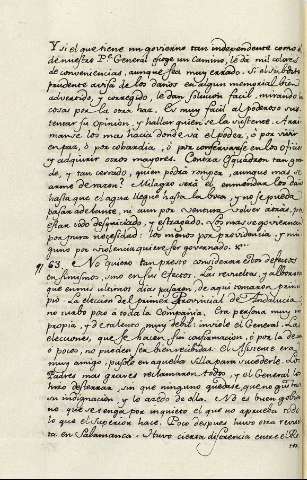 Y si el que tiene un govierno tan independente como el
de nuestro Pe. General elige un camino, le da mil colores
de conveniencias, aunque sea muy errado. Si el subdito
prudente avisa de los daños en algun memorial bien
advertido, y corregido, le dan solucion facil mirando las
cosas por la otra haz. Es muy facil al poderoso sus-
tentar su opinion, y hallar quien se la sustente. Arri-
manse los mas hacia donde va el poder, ò por vivir
en paz, ò por cobardia, ò por conservarse en los oficios
y adquirir otros mayores. Contra Esquadron tan gran-
de, y tan cerrado, quien podra romper, aunque mas se
arme de razon? Milagro será el enmendar los daños
hasta que el agua llegue hasta la boca, y no se pueda
pasar adelante, ni aun por ventura volver atras, por
estar todo desquiciado, y estragado. Los mas se goviernan
por pura necesidad: los menos por providencia, y nin-
guno por violencia quiere ser governado.
63. No quiero tan presto considerar estos defectos
en si mismos, sino en sus efectos. Las revueltas, y alborotos
que en mis ultimos dias pasaron, de aqui tomaron princi-
pio. La eleccion del primer Provincial de Andalucia
no supo bien a toda la Compañia. Era persona muy
propia, y de talento muy debil: imbiole el General. Las
elecciones, que se hacen sin informacion, ò por la de uno,
ò pocos, no pueden ser bien recibidas. El Asistente era
muy amigo, quiso en aquella silla para sucederle. Los
Padres mas graves reclamaron todos, y el General los
hizo desterrar, sin que ninguno quedase, que no sintiese
su indignacion, y lo acedo de ella. No es buen govier-
no que se tenga por inquieto el que no aprueba todo
lo que el Superior hace. Poco despues huvo otra revuel-
ta en Salamanca. Huvo cierta diferencia entre el Re-